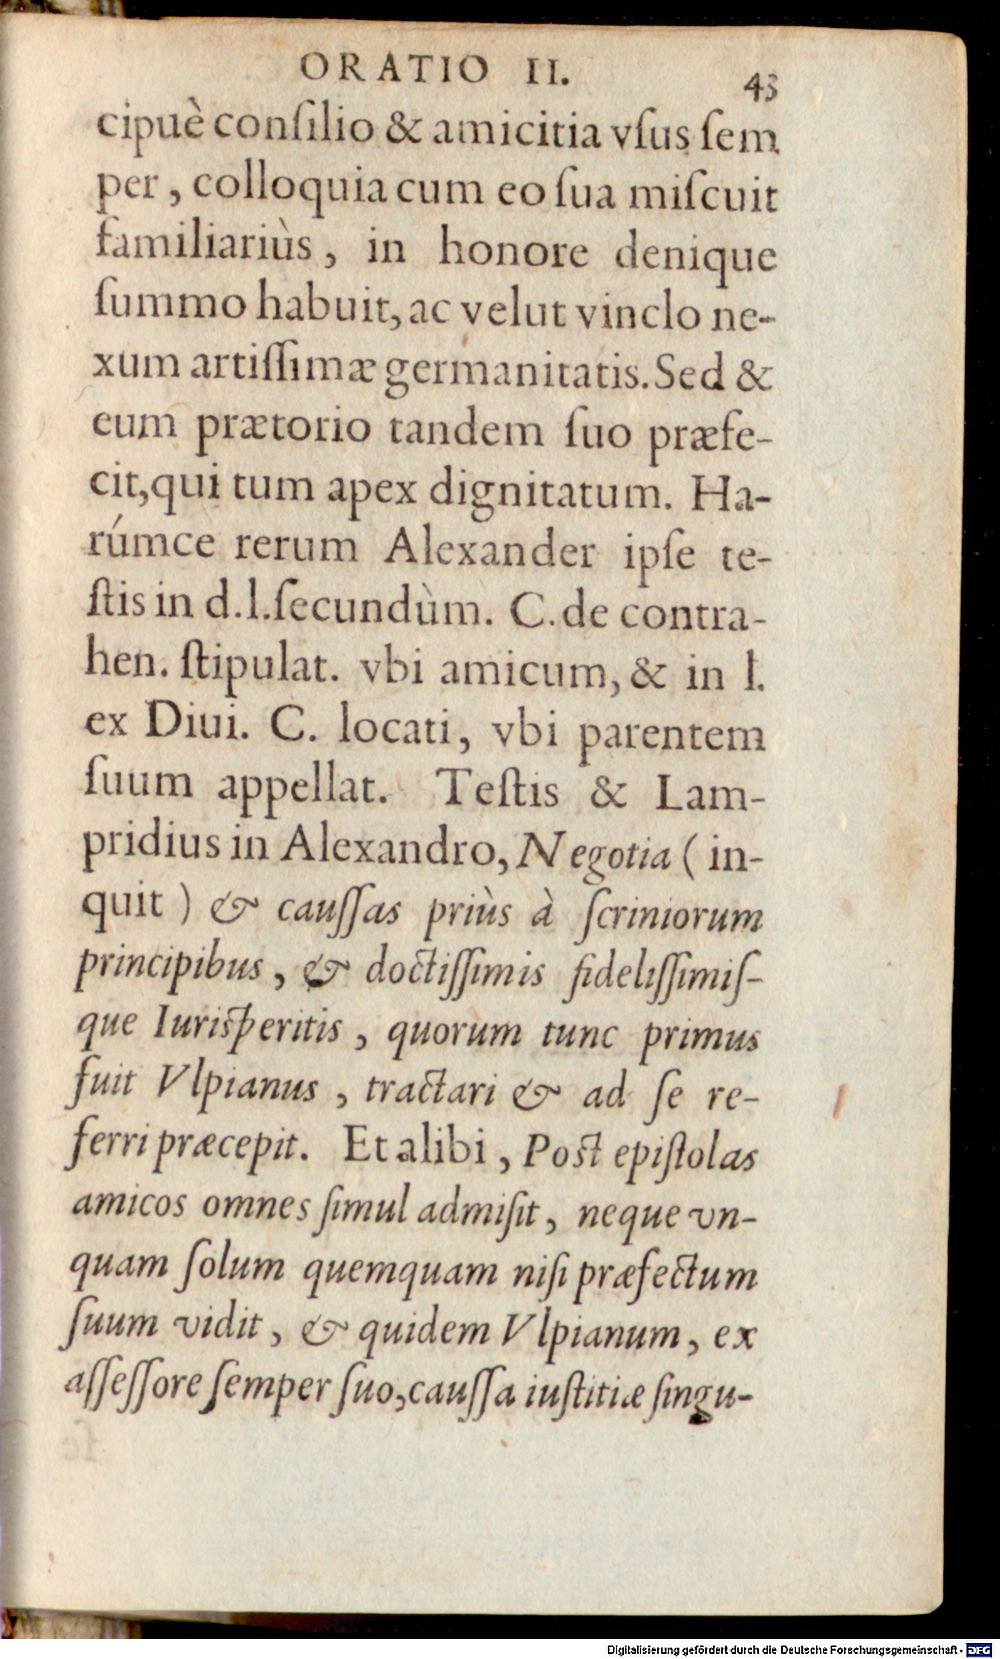 ORATIO II. 43
cipuè conſilio & amicitia vſus ſem
per, colloquia cum eo ſua miſcuit
familiariùs, in honore denique
ſummo habuit, ac velut vinclo ne-
xum artiſſimæ germanitatis. Sed &
eum prætorio tandem ſuo præfe-
cit, qui tum apex dignitatum. Ha-
rúmce rerum Alexander ipſe te-
ſtis in d.l.ſecundùm. C. de contra-
hen. ſtipulat. vbi amicum, & in l.
ex Diui. C. locati, vbi parentem
ſuum appellat. Teſtis & Lam-
pridius in Alexandro, Negotia (in-
quit) & cauſſas priùs à ſcriniorum
principibus, & doctiſſimis fideliſſimiſ-
que Iuriſperitis, quorum tunc primus
fuit Vlpianus, tractari & ad ſe re-
ferri præcepit. Et alibi, Poſt epiſtolas
amicos omnes ſimul admiſit, neque vn-
quam ſolum quemquam niſi præfectum
ſuum vidit, & quidem Vlpianum, ex
aſſeſſore ſemper ſuo, cauſſa iuſtitiæ ſingu-
Digitalisierung gefördert durch die Deutsche Forschungsgemeinschaft - DFG